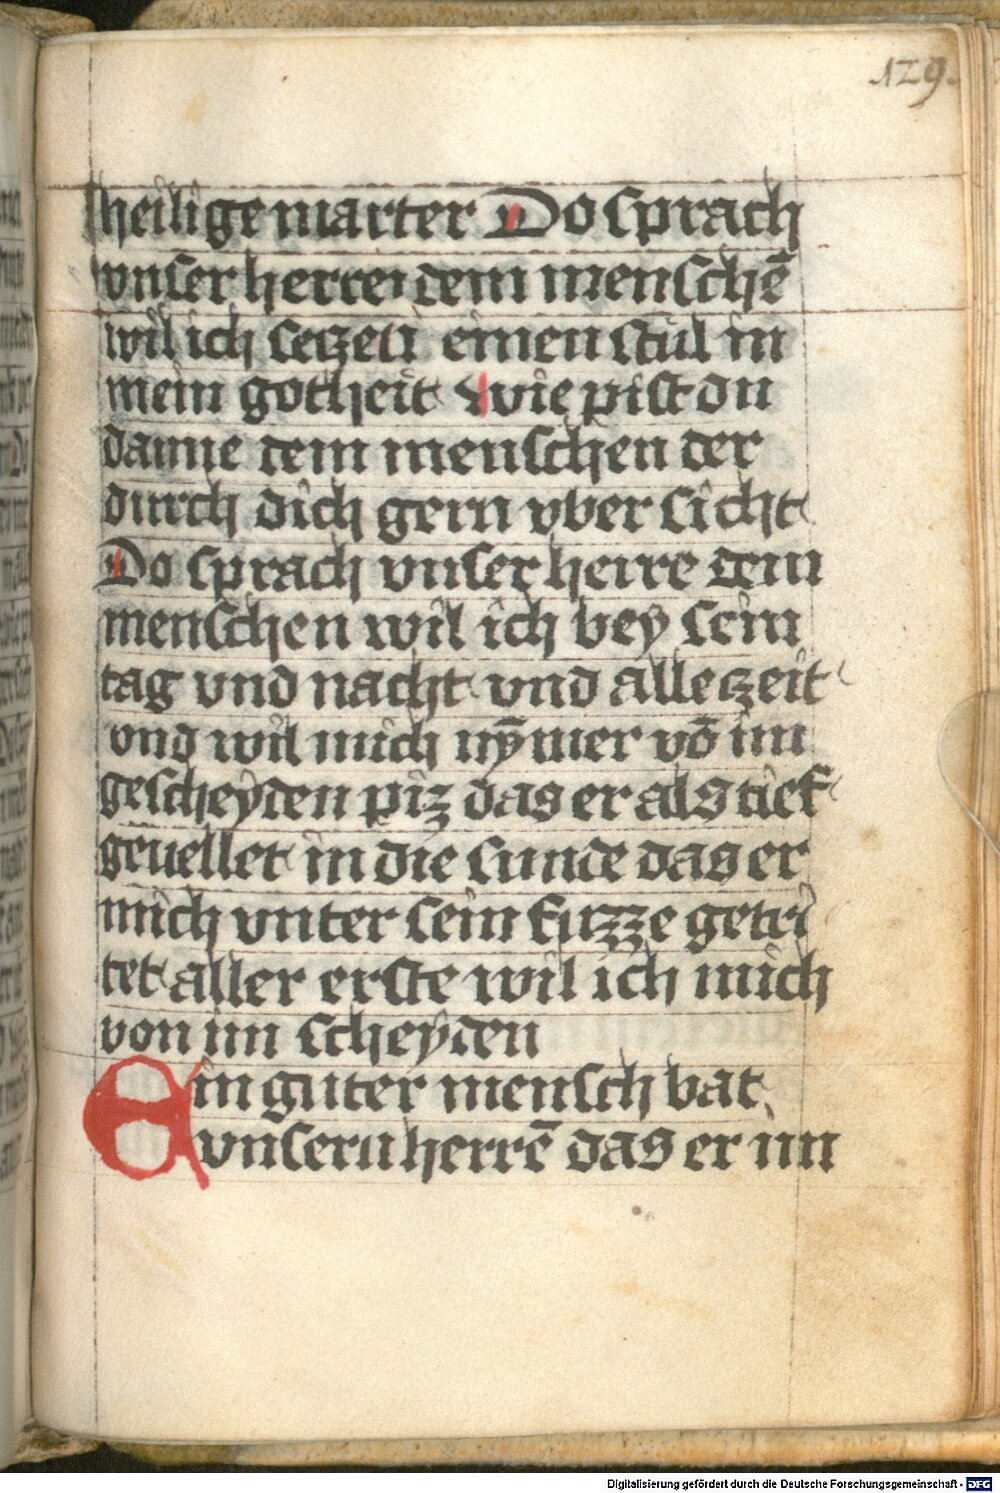 129.
heilige marter Do sprach
vnser herre dem menschē
wil ich seczen einen stul in
mein gotheit wie pist du
danne dem menschen der
durch dich gern vber sicht
Do sprach vnser herre dem
menschen wil ich bey sein
tag vnd nacht vnd alleczeit
vnd wil mich nȳmer vō im
gescheyden piz das er als tief
geuellet in die sunde das er
mich vnter sein fuzze getri
tet aller erste wil ich mich
von im scheyden
Ein guter mensch bat
vnsern herrē das er im
Digitalisierung gefördert durch die Deutsche Forschungsgemeinschaft - DFG